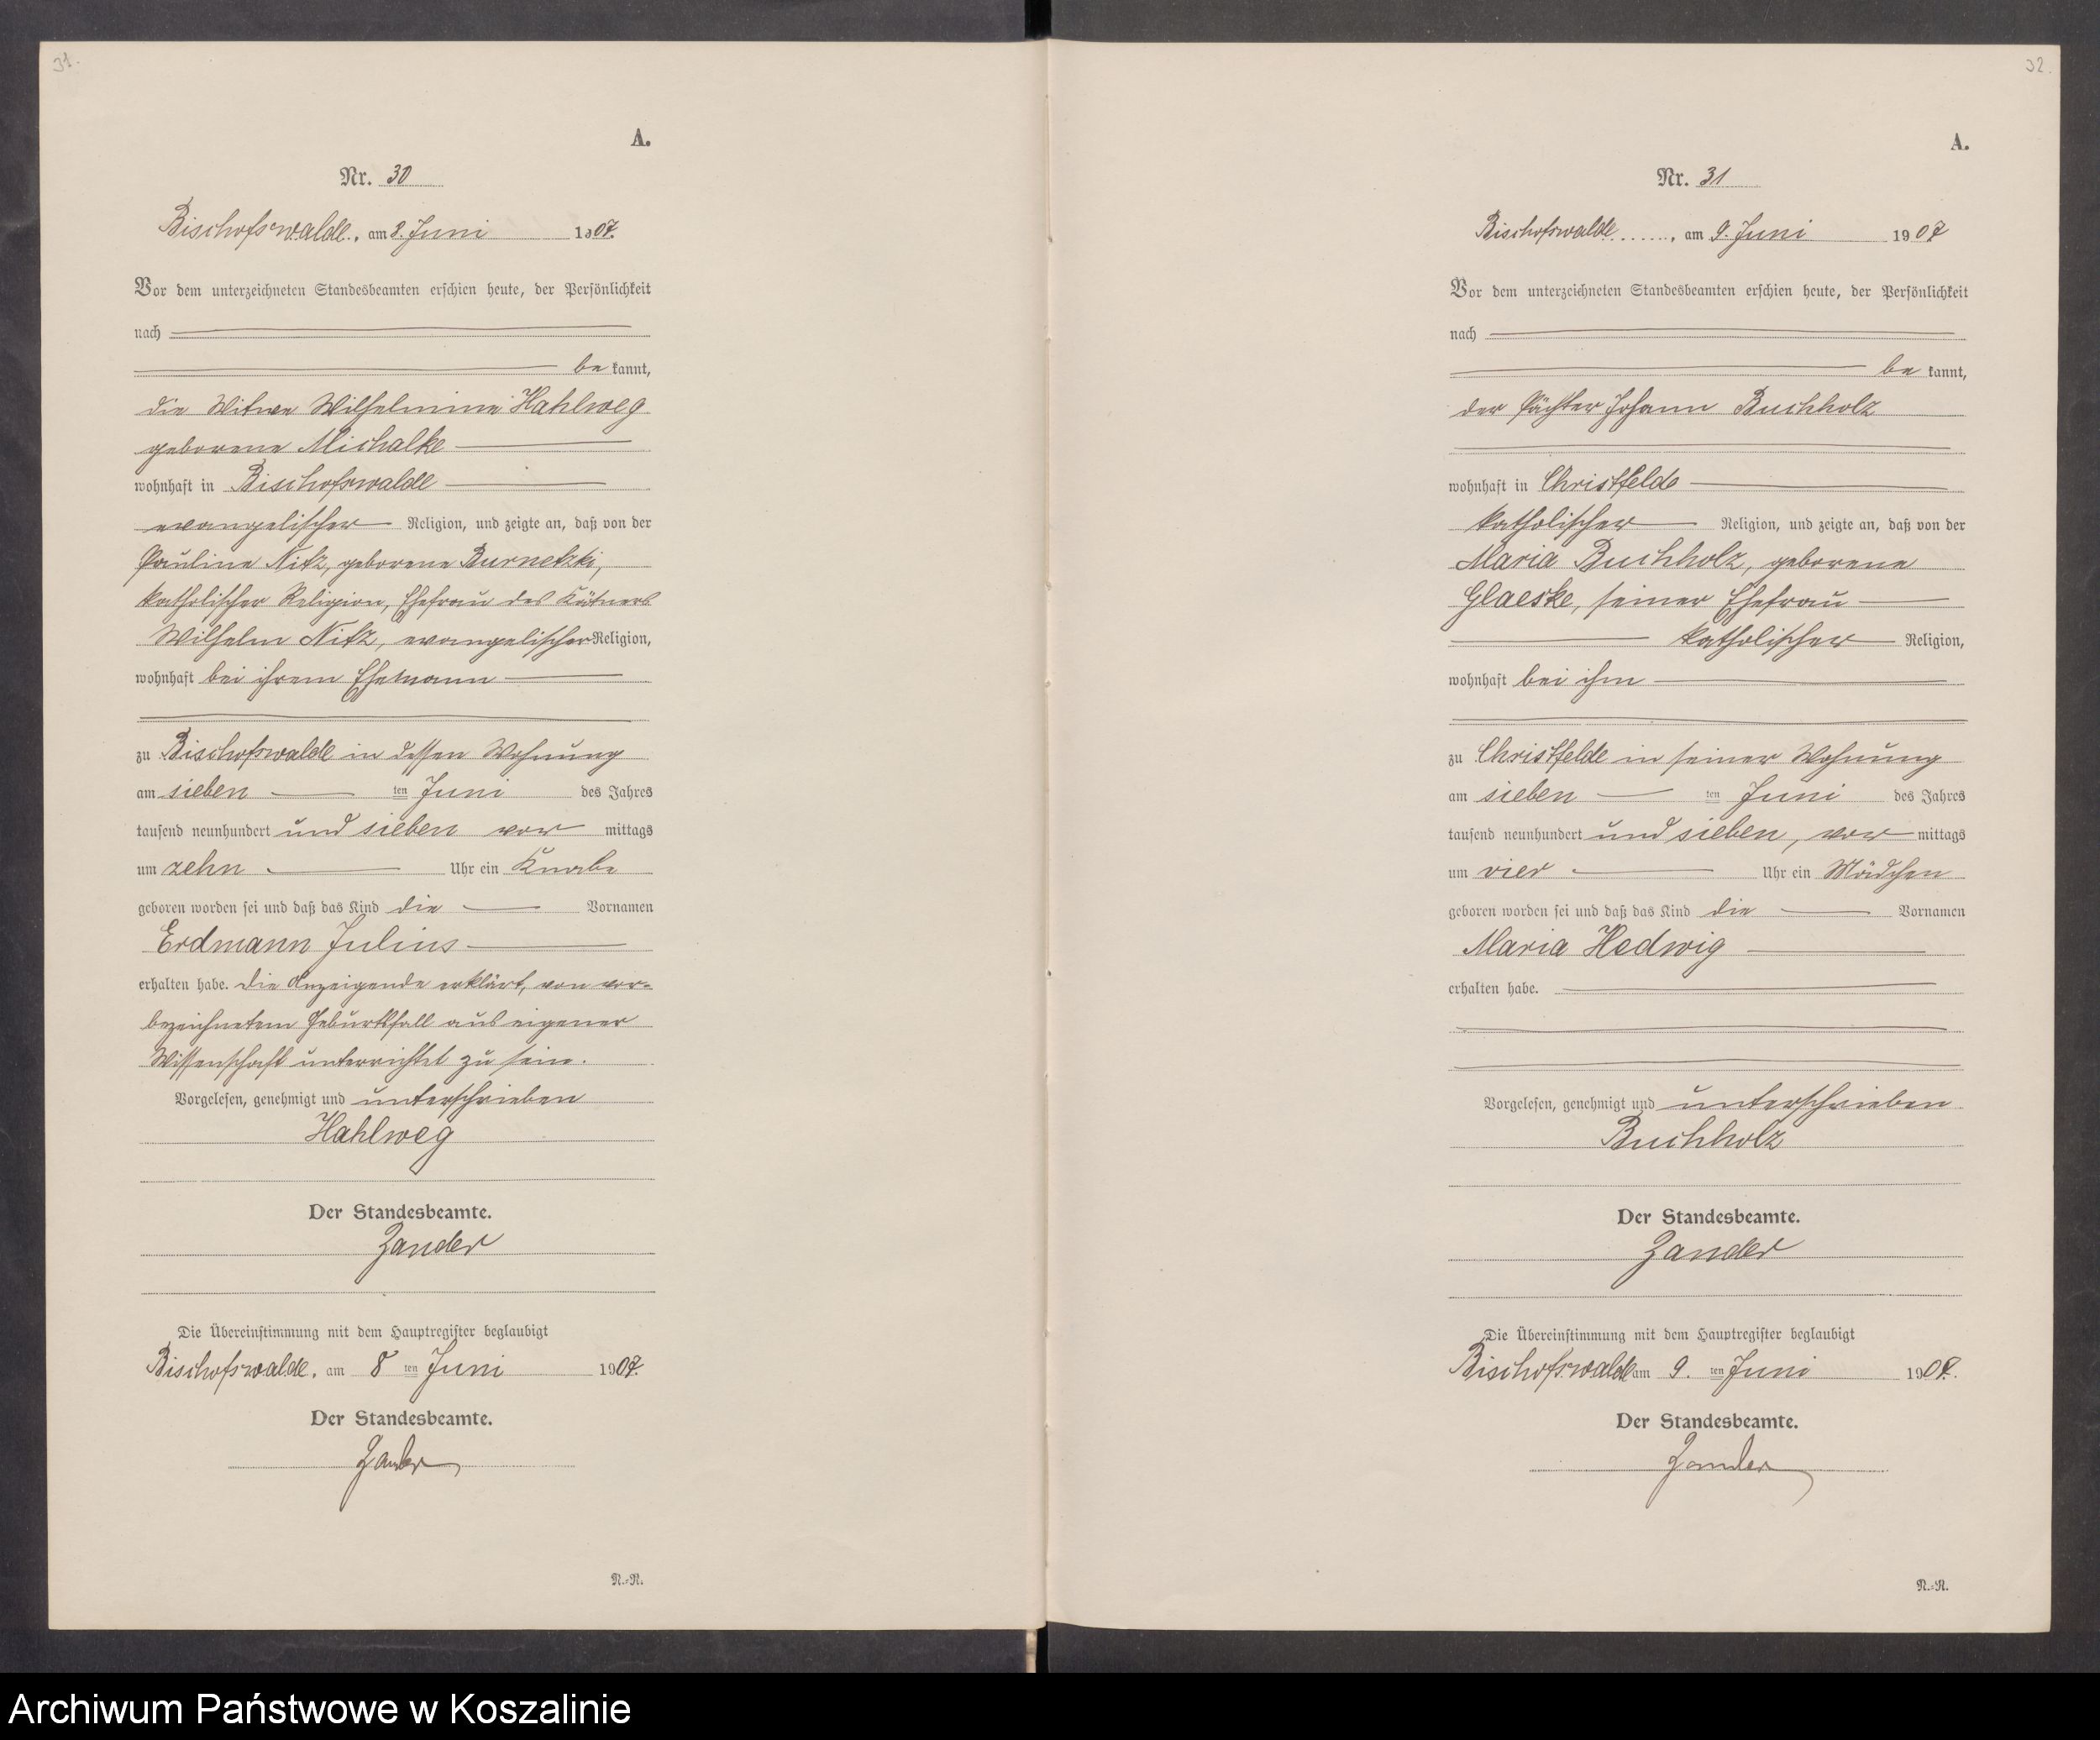 31.
A.
Nr. 30
Bischofswalde, am 8. Juni 1907.
Vor dem unterzeichneten Standesbeamten erschien heute, der Persönlichkeit
nach
be kannt,
die Witwe Wilhelmine Hahlweg
geborene Michalke
wohnhaft in Bischofswalde
evangelischer Religion, und zeigte an, daß von der
Pauline Nitz, geborene Burnetzki,
katholischer Religion, Ehefrau des Kätners
Wilhelm Nitz, evangelischer Religion,
wohnhaft bei ihrem Ehemann
zu Bischofswalde in dessen Wohnung
am sieben ten Juni des Jahres
tausend neunhundert und sieben vor mittags
um zehn Uhr ein Knabe
geboren worden sei und daß das Kind die Vornamen
Erdmann Julius
erhalten habe. Die Anzeigende erklärt, von vor-
bezeichnetem Geburtsfall aus eigener
Wissenschaft unterrichtet zu sein.
Vorgelesen, genehmigt und unterschrieben
Hahlweg
Der Standesbeamte.
Zander
Die Übereinstimmung mit dem Hauptregister beglaubigt
Bischofswalde, am 8 ten Juni 1907.
Der Standesbeamte.
Zander
N.-R.
32.
A.
Nr. 31
Bischofswalde, am 9. Juni 1907
Vor dem unterzeichneten Standesbeamten erschien heute, der Persönlichkeit
nach
be kannt,
der Pächter Johann Buchholz
wohnhaft in Christfelde
katholischer Religion, und zeigte an, daß von der
Maria Buchholz, geborene
Glaeske, seiner Ehefrau
katholischer Religion,
wohnhaft bei ihm
zu Christfelde in seiner Wohnung
am sieben ten Juni des Jahres
tausend neunhundert und sieben, vor mittags
um vier Uhr ein Mädchen
geboren worden sei und daß das Kind die Vornamen
Maria Hedwig
erhalten habe.
Vorgelesen, genehmigt und unterschrieben
Buchholz
Der Standesbeamte.
Zander
Die Übereinstimmung mit dem Hauptregister beglaubigt
Bischofswalde am 9. ten Juni 1907.
Der Standesbeamte.
Zander
N.-R.
Archiwum Państwowe w Koszalinie